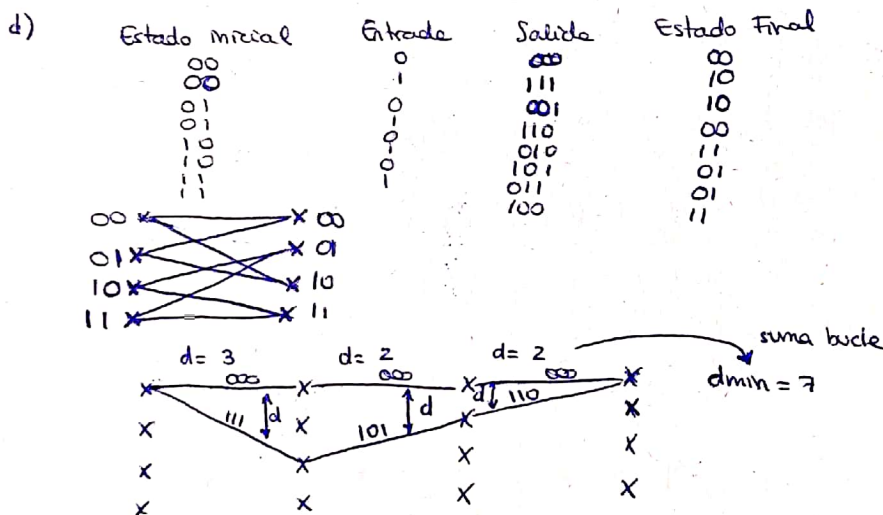 d) Estado inicial Entrada Salida Estado Final
00 0 000 00
00 1 111 10
01 0 001 10
01 1 110 00
10 0 010 11
10 1 101 01
11 0 011 01
11 1 100 11
00 00
01 01
10 10
11 11
suma bucle
d= 3 d= 2 d= 2
000 000 000 dmin = 7
111 d 101 d d 110